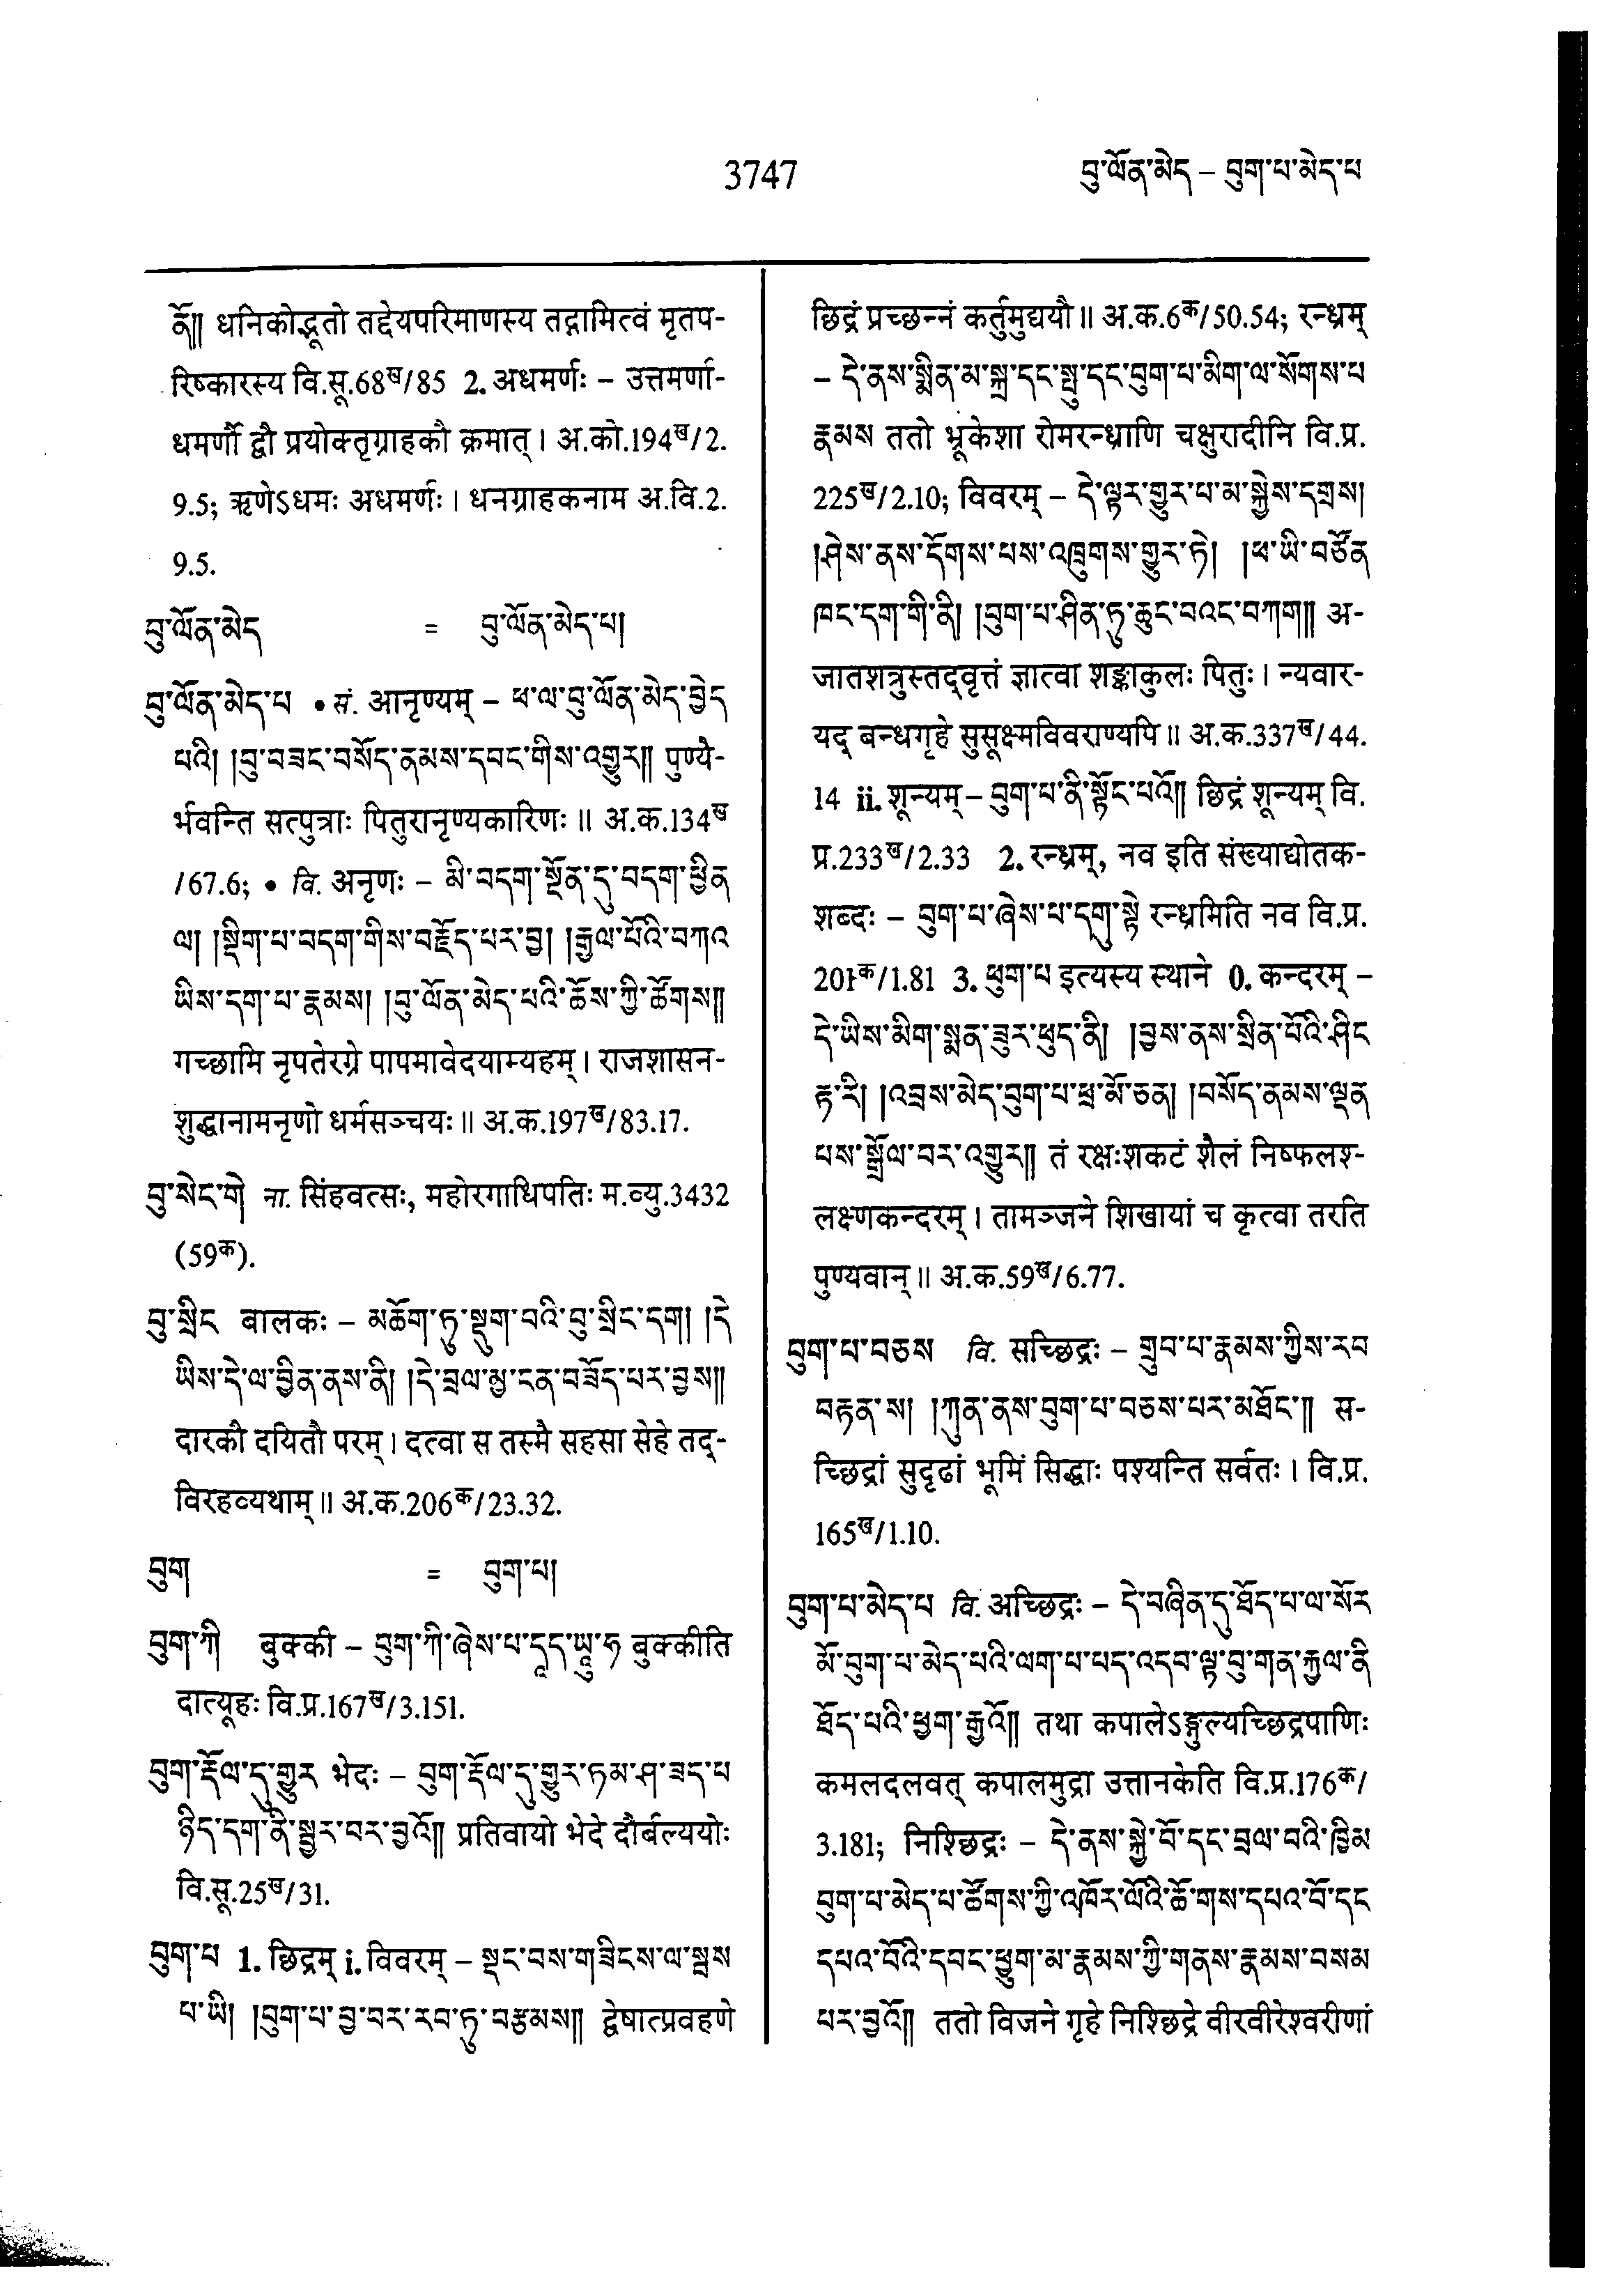 3747
བུ་ལོན་མེད – བུག་པ་མེད་པ
ནོ།། धनिकोद्भूतो तद्देयपरिमाणस्य तद्गामित्वं मृतप-
रिष्कारस्य वि.सू.68ख/85 2. अधमर्णः – उत्तमर्णा-
धमर्णौ द्वौ प्रयोक्तृग्राहकौ क्रमात्। अ.को.194ख/2.
9.5; ऋणेऽधमः अधमर्णः। धनग्राहकनाम अ.वि.2.
9.5.
བུ་ལོན་མེད = བུ་ལོན་མེད་པ།
བུ་ལོན་མེད་པ • सं. आनृण्यम् – ཕ་ལ་བུ་ལོན་མེད་བྱེད
པའི། །བུ་བཟང་བསོད་ནམས་དབང་གིས་འགྱུར།། पुण्यै-
र्भवन्ति सत्पुत्राः पितुरानृण्यकारिणः॥ अ.क.134ख
/67.6; • वि. अनृणः – མི་བདག་སྔོན་དུ་བདག་ཕྱིན
ལ། །སྡིག་པ་བདག་གིས་བརྗོད་པར་བྱ། །རྒྱལ་པོའི་བཀའ
ཡིས་དག་པ་རྣམས། །བུ་ལོན་མེད་པའི་ཆོས་ཀྱི་ཚོགས།།
गच्छामि नृपतेरग्रे पापमावेदयाम्यहम्। राजशासन-
शुद्धानामनृणो धर्मसञ्चयः॥ अ.क.197ख/83.17.
བུ་སེང་གེ ना. सिंहवत्सः, महोरगाधिपतिः म.व्यु.3432
(59क).
བུ་སྲིང बालकः – མཆོག་ཏུ་སྡུག་བའི་བུ་སྲིང་དག། །དེ
ཡིས་དེ་ལ་བྱིན་ནས་ནི། །དེ་བྲལ་མྱ་ངན་བཟོད་པར་བྱས།།
दारकौ दयितौ परम्। दत्वा स तस्मै सहसा सेहे तद्-
विरहव्यथाम्॥ अ.क.206क/23.32.
བུག = བུག་པ།
བུག་ཀི बुक्की – བུག་ཀི་ཞེས་པ་དཱད་ཡཱུ་ཧ बुक्कीति
दात्यूहः वि.प्र.167ख/3.151.
བུག་རྡོལ་དུ་གྱུར भेदः – བུག་རྡོལ་དུ་གྱུར་ཏམ་ཤ་ཟད་པ
ཉིད་དག་ནི་སྦྱར་བར་བྱའོ།། प्रतिवायो भेदे दौर्बल्ययोः
वि.सू.25ख/31.
བུག་པ 1. छिद्रम् i. विवरम् – སྡང་བས་གཟིངས་ལ་སྦས
པ་ཡི། །བུག་པ་བྱ་བར་རབ་ཏུ་བརྩམས།། द्वेषात्प्रवहणे
छिद्रं प्रच्छन्नं कर्तुमुद्ययौ॥ अ.क.6क/50.54; रन्ध्रम्
– དེ་ནས་སྨིན་མ་སྐྲ་དང་སྤུ་དང་བུག་པ་མིག་ལ་སོགས་པ
རྣམས ततो भ्रूकेशा रोमरन्ध्राणि चक्षुरादीनि वि.प्र.
225ख/2.10; विवरम् – དེ་ལྟར་གྱུར་པ་མ་སྐྱེས་དགྲས།
།ཤེས་ནས་དོགས་པས་འཁྲུགས་གྱུར་ཏེ། །ཕ་ཡི་བཙོན
ཁང་དག་གི་ནི། །བུག་པ་ཤིན་ཏུ་ཆུང་བའང་བཀག།། अ-
जातशत्रुस्तद्वृत्तं ज्ञात्वा शङ्काकुलः पितुः। न्यवार-
यद् बन्धगृहे सुसूक्ष्मविवराण्यपि॥ अ.क.337ख/44.
14 ii. शून्यम् – བུག་པ་ནི་སྟོང་པའོ།། छिद्रं शून्यम् वि.
प्र.233ख/2.33 2. रन्ध्रम्, नव इति संख्याद्योतक-
शब्दः – བུག་པ་ཞེས་པ་དགུ་སྟེ रन्ध्रमिति नव वि.प्र.
201क/1.81 3. ཕུག་པ इत्यस्य स्थाने 0. कन्दरम् –
དེ་ཡིས་མིག་སྨན་ཟུར་ཕུད་ནི། །བྱས་ནས་སྲིན་པོའི་ཤིང
རྟ་རི། །འབྲས་མེད་བུག་པ་ཕྲ་མོ་ཅན། །བསོད་ནམས་ལྡན
པས་སྒྲོལ་བར་འགྱུར།། तं रक्षःशकटं शैलं निष्फलश्-
लक्ष्णकन्दरम्। तामञ्जने शिखायां च कृत्वा तरति
पुण्यवान्॥ अ.क.59ख/6.77.
བུག་པ་བཅས वि. सच्छिद्रः – གྲུབ་པ་རྣམས་ཀྱིས་རབ
བརྟན་ས། །ཀུན་ནས་བུག་པ་བཅས་པར་མཐོང་།། स-
च्छिद्रां सुदृढां भूमिं सिद्धाः पश्यन्ति सर्वतः। वि.प्र.
165ख/1.10.
བུག་པ་མེད་པ वि. अच्छिद्रः – དེ་བཞིན་དུ་ཐོད་པ་ལ་སོར
མོ་བུག་པ་མེད་པའི་ལག་པ་པད་འདབ་ལྟ་བུ་གན་རྐྱལ་ནི
ཐོད་པའི་ཕྱག་རྒྱའོ།། तथा कपालेऽङ्गुल्यच्छिद्रपाणिः
कमलदलवत् कपालमुद्रा उत्तानकेति वि.प्र.176क/
3.181; निश्छिद्रः – དེ་ནས་སྐྱེ་བོ་དང་བྲལ་བའི་ཁྱིམ
བུག་པ་མེད་པ་ཚོགས་ཀྱི་འཁོར་ལོའི་ཆོ་གས་དཔའ་བོ་དང
དཔའ་བོའི་དབང་ཕྱུག་མ་རྣམས་ཀྱི་གནས་རྣམས་བསམ
པར་བྱའོ།། ततो विजने गृहे निश्छिद्रे वीरवीरेश्वरीणां